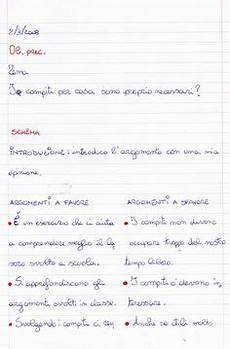 2/3/2008
OB. prec.
Tema
I compiti per casa sono proprio necessari?
SCHEMA
INTRODUZIONE: introduco l'argomento con una mia
opinione.
ARGOMENTI A FAVORE
• È un esercizio che ci aiuta
a comprendere meglio il la
voro svolto a scuola.
• Si approfondiscono gli
argomenti svolti in classe.
• Svolgendo i compiti ci ren
ARGOMENTI A SFAVORE
• I compiti non devono
occupare troppo del nostro
tempo libero.
• I compiti ci devono in
teressare.
• Anche se utili molti